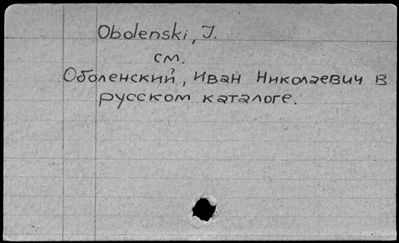 Obolenski, I.
см.
Оболенский, Иван Николаевич в
русском каталоге.